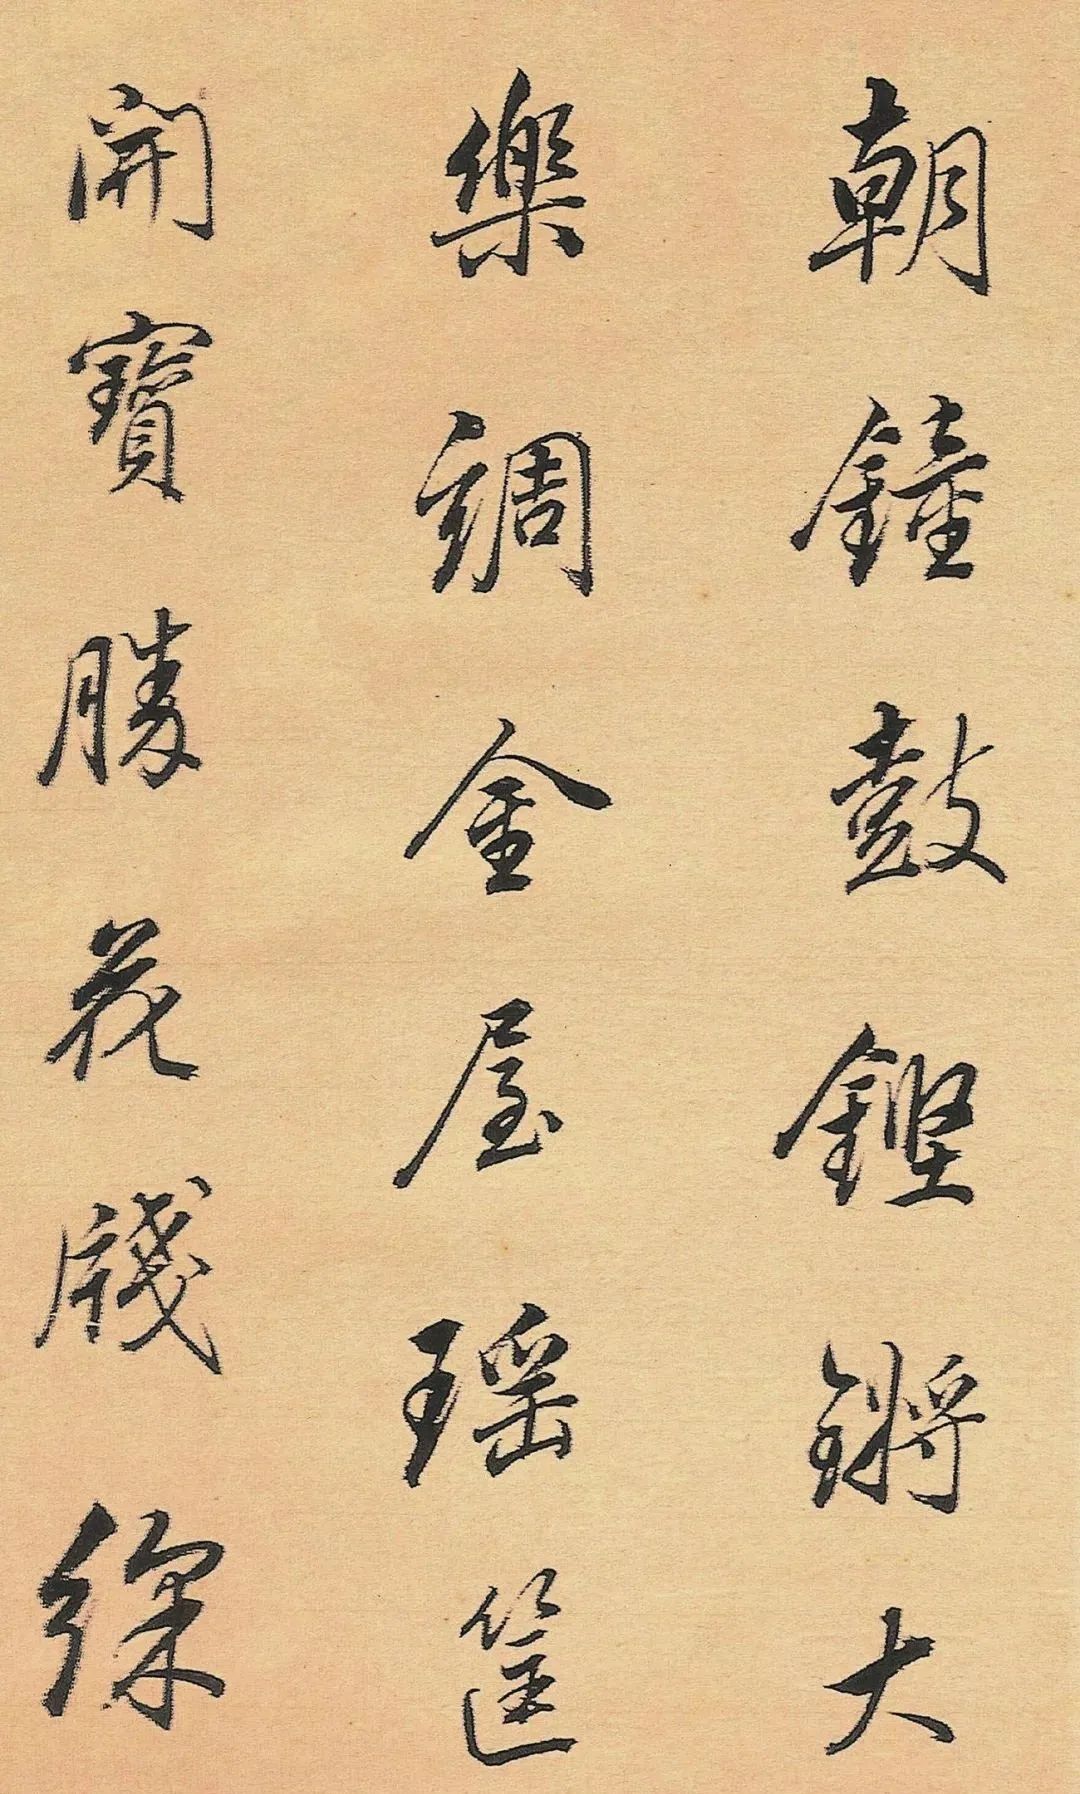 朝鐘鼓鏗鏘大
樂調金屋瑤筐
開寶勝花牋綵